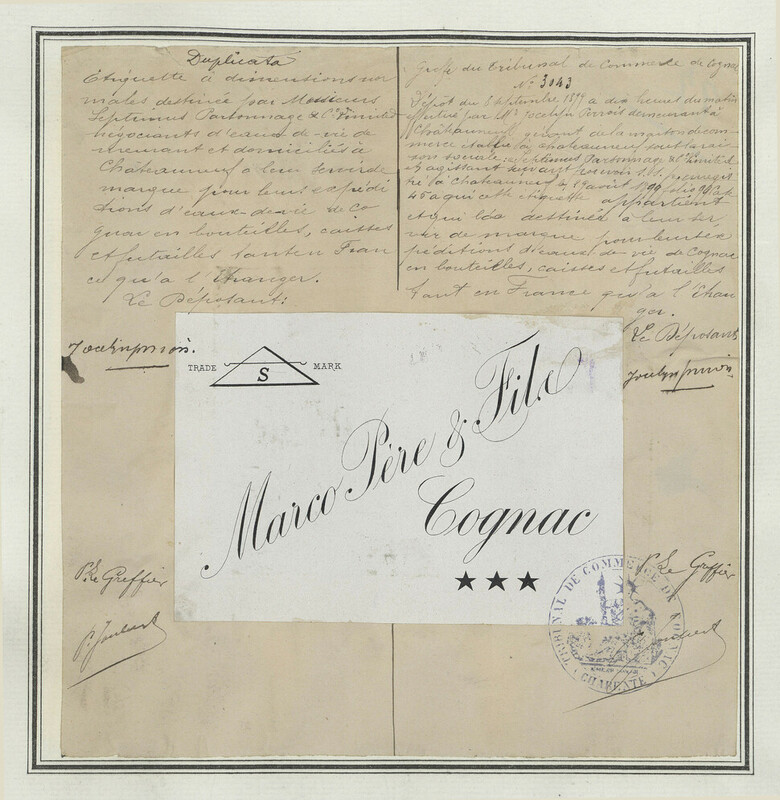 Duplicata
Etiquette à dimensions nor
males destinée par Messieurs
Septimus Parsonnage & Cº Limited
négociants d'eaux-de-vie de
meurant et domiciliés à
Châteauneuf a leur servir de
marque pour leurs expédi
tions d'eaux-de-vie de Co
gnac en bouteilles, caisses
et futailles tant en Fran
ce qu'à l'Etranger.
Le Déposant:
Greffe du Tribunal de Commerce de Cognac
Nº 3043
Dépôt du 5 septembre 1899 à dix heures du matin
effectué par Mr Jocelyn demeurant à
Châteauneuf gérant de la maison de com
merce établie à Châteauneuf sous la rai
son sociale Septimus Parsonnage & Cº Limited
et agissant suivant pouvoir s.s.p. enregis
tré à Châteauneuf le 19 août 1899 folio
45 à qui cette étiquette appartient
et qui l'a destinée à leur ser
vir de marque pour leurs ex
péditions d'eaux-de-vie de Cognac
en bouteilles, caisses et futailles
tant en France qu'à l'Etran
ger.
Le Déposant
TRADE S MARK
Marco Père & Fils
Cognac
★★★
Le Greffier
Le Greffier
TRIBUNAL DE COMMERCE DE COGNAC
CHARENTE